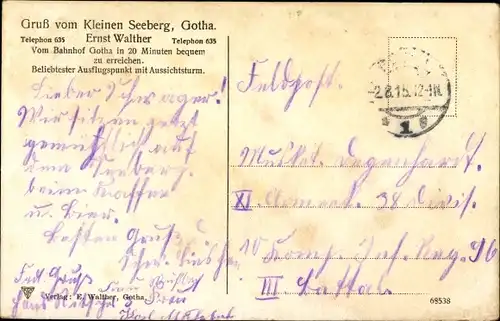 Gruß vom Kleinen Seeberg, Gotha.
Telephon 635 Ernst Walther Telephon 635
Vom Bahnhof Gotha in 20 Minuten bequem
zu erreichen.
Beliebtester Ausflugspunkt mit Aussichtsturm.
Lieber Schwager!
Wir sitzen jetzt
gemütlich auf
dem Seeberg
beim Kaffee
u. Bier.
Besten Gruß
Feldpost.
-2.8.15.12-1N.
* 1 *
Musket. Degenhardt.
XI Armeek. 38 Divis.
10 Komp. Inf. Reg. 96
III Battal.
Verlag: E. Walther, Gotha.
68538